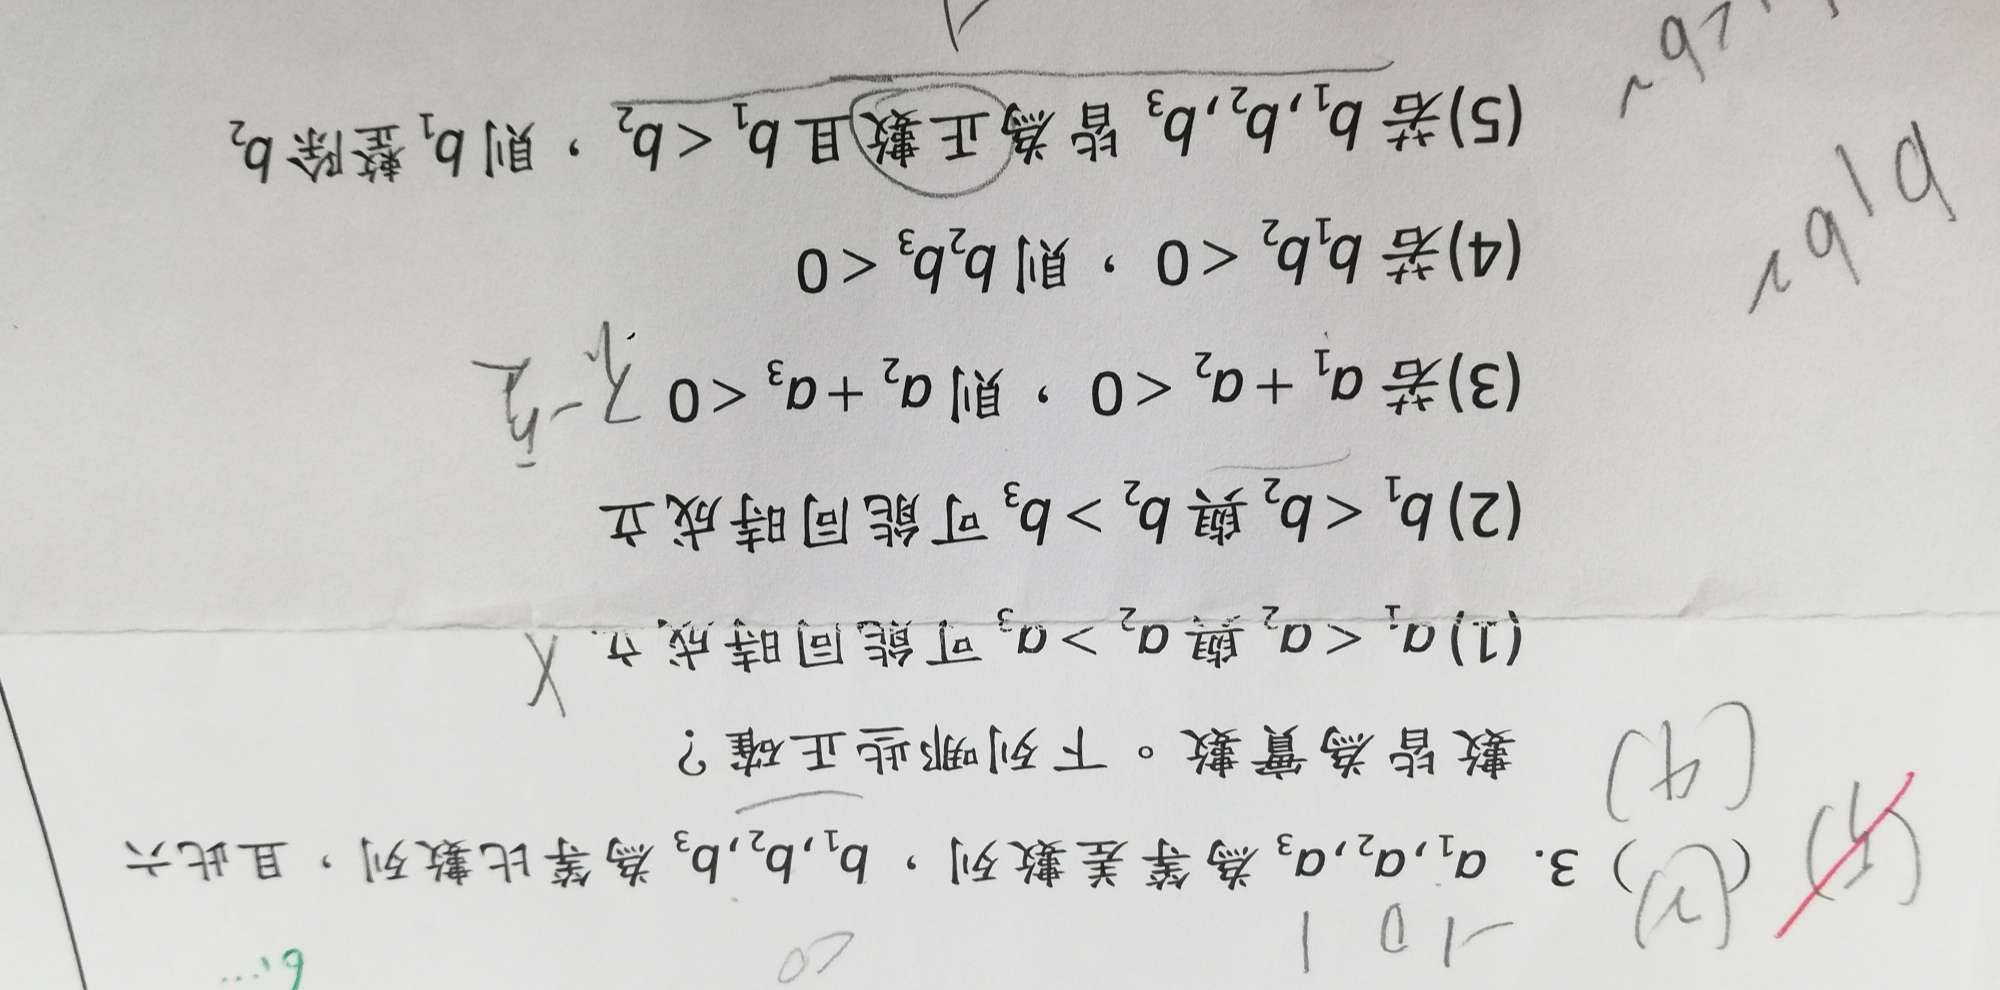 -1 0 1
3. a₁,a₂,a₃ 為等差數列，b₁,b₂,b₃ 為等比數列，且此六
數皆為實數。下列哪些正確？
(2)
(4)
(5)
(1) a₁ < a₂ 與 a₂ > a₃ 可能同時成立 X
(2) b₁ < b₂ 與 b₂ > b₃ 可能同時成立
(3) 若 a₁ + a₂ < 0，則 a₂ + a₃ < 0
(4) 若 b₁b₂ < 0，則 b₂b₃ < 0
(5) 若 b₁,b₂,b₃ 皆為正數且 b₁ < b₂，則 b₁ 整除 b₂